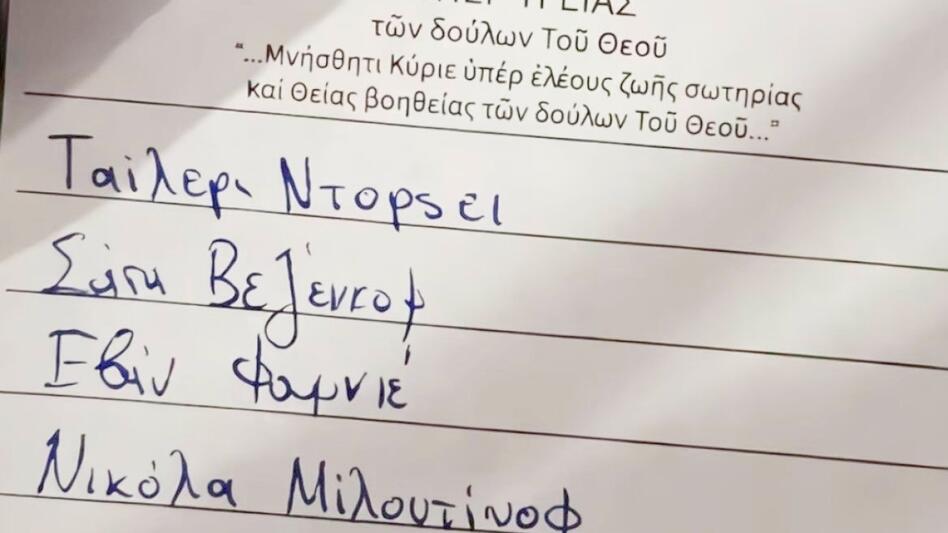 τῶν δούλων Τοῦ Θεοῦ
“...Μνήσθητι Κύριε ὑπέρ ἐλέους ζωῆς σωτηρίας
καί Θείας βοηθείας τῶν δούλων Τοῦ Θεοῦ...”
Ταίλερ Ντορςει
Σάσα Βεζένκοφ
Εβάν Φουρνιέ
Νικόλα Μιλουτίνοφ